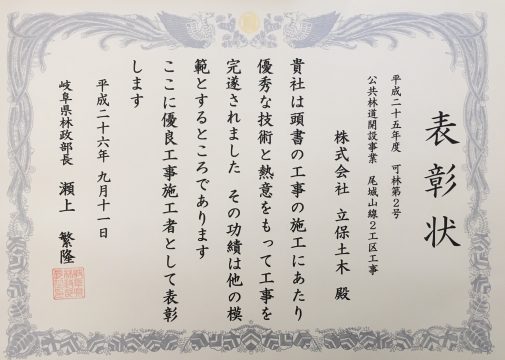 表彰状
平成二十五年度 可林第2号
公共林道開設事業 尾城山線2工区工事
株式会社 立保土木 殿
貴社は頭書の工事の施工にあたり
優秀な技術と熱意をもって工事を
完遂されました その功績は他の模
範とするところであります
ここに優良工事施工者として表彰
します
平成二十六年 九月十一日
岐阜県林政部長 瀬上 繁隆